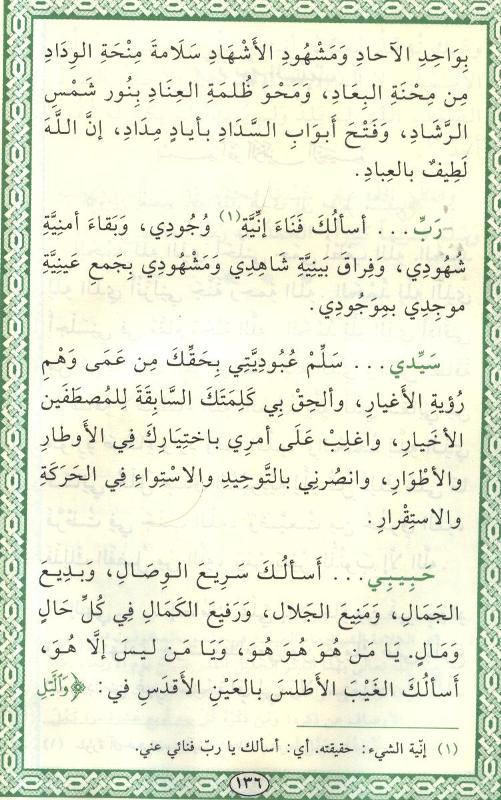 بِوَاحِدِ الآحادِ وَمَشْهُودِ الأَشْهَادِ سَلَامةَ مِنْحَةِ الوِدَادِ
مِن مِحْنَةِ البِعَادِ، وَمَحْوَ ظُلمَةِ العِنَادِ بِنُور شَمْسِ
الرَّشَادِ، وَفَتْحَ أَبوَابِ السَّدَادِ بأيادِ مِدَادِ، إنَّ اللهَ
لَطِيفٌ بالعِبادِ.
رَبِّ... أسألُكَ فَنَاءَ إنِّيَّةِ(١) وُجُودِي، وَبَقاءَ أمنِيَّةِ
شُهُودِي، وَفِراقَ بَينِيَّةِ شَاهِدِي وَمَشْهُودِي بِجَمعِ عَينِيَّةِ
موجِدِي بمِوَجُودِي.
سَيِّدي... سَلِّمْ عُبُودِيَّتِي بِحَقِّكَ مِن عَمَى وَهْمِ
رُؤيةِ الأغيارِ، وألحِقْ بِي كَلِمَتَكَ السَّابقَةَ لِلمُصطَفَين
الأخيارِ، واغلِبْ عَلَى أمرِي باختِيارِكَ فِي الأوطارِ
والأطْوَارِ، وانصُرنِي بالتَّوحِيدِ والاسْتِواءِ فِي الحَرَكَةِ
والاستِقْرارِ.
حَبِيبِي... أَسألُكَ سَرِيعَ الوِصَالِ، وَبَدِيعَ
الجَمَالِ، وَمَنِيعَ الجَلالِ، وَرَفيعَ الكَمَالِ فِي كُلِّ حَالٍ
وَمَالٍ. يَا مَن هُوَ هُوَ هُوَ، وَيَا مَن لَيسَ إلَّا هُوَ،
أَسألُكَ الغَيْبَ الأطلَسَ بالعَيْنِ الأَقدَسِ في: ﴿وَٱلَّيْلِ
(١) إنّية الشيء: حقيقته. أي: أسالك يا ربّ فنائي عني.
١٣٦